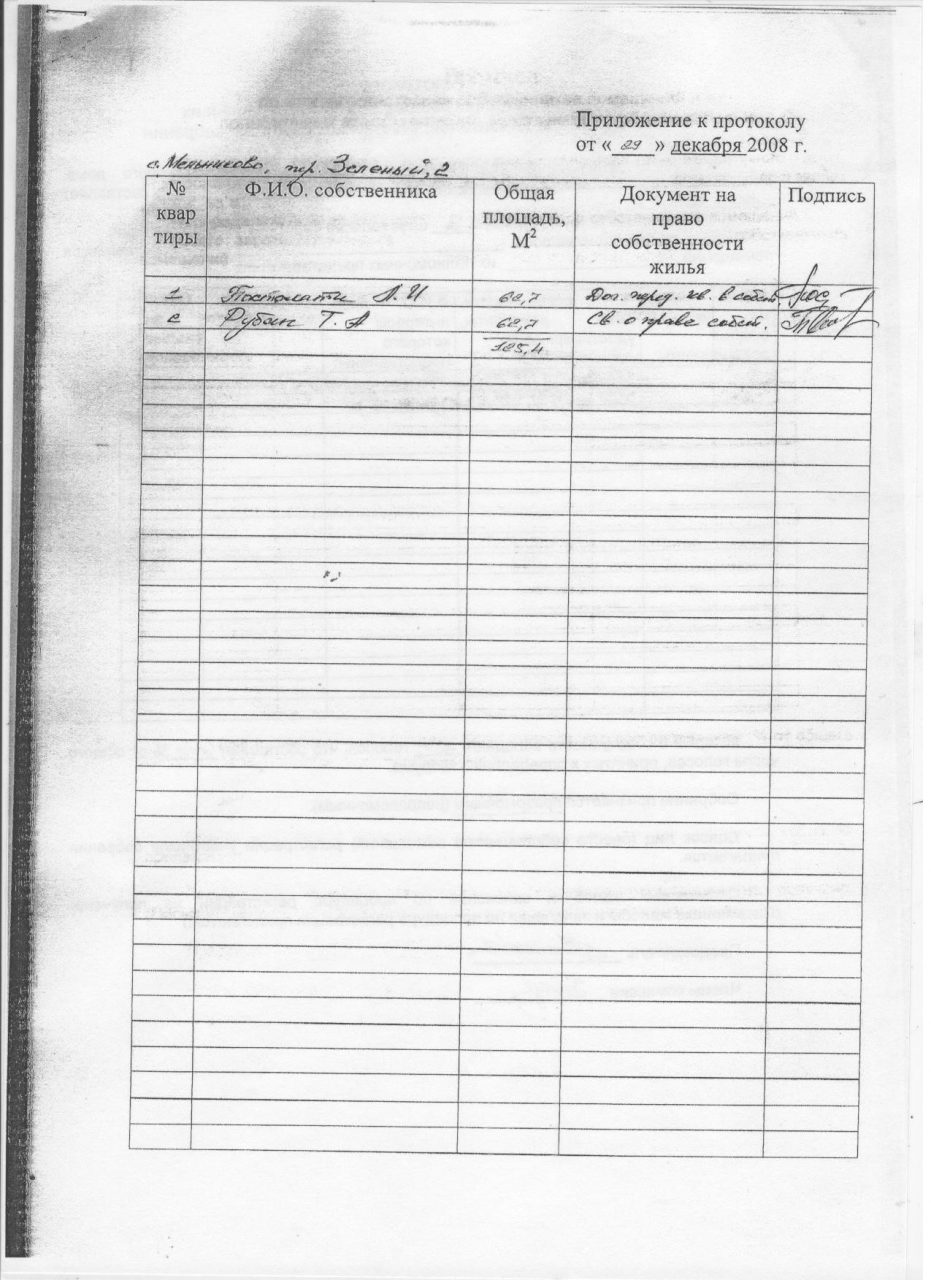 Приложение к протоколу
от « 29 » декабря 2008 г.
с. Мельниково, пер. Зеленый, 2
№ квартиры Ф.И.О. собственника Общая площадь, М2 Документ на право собственности жилья Подпись
1 Постолати Л. И 62,7 Дог. перед. кв. в собст
2 Рубан Т. А 62,7 Св. о праве собст.
125,4